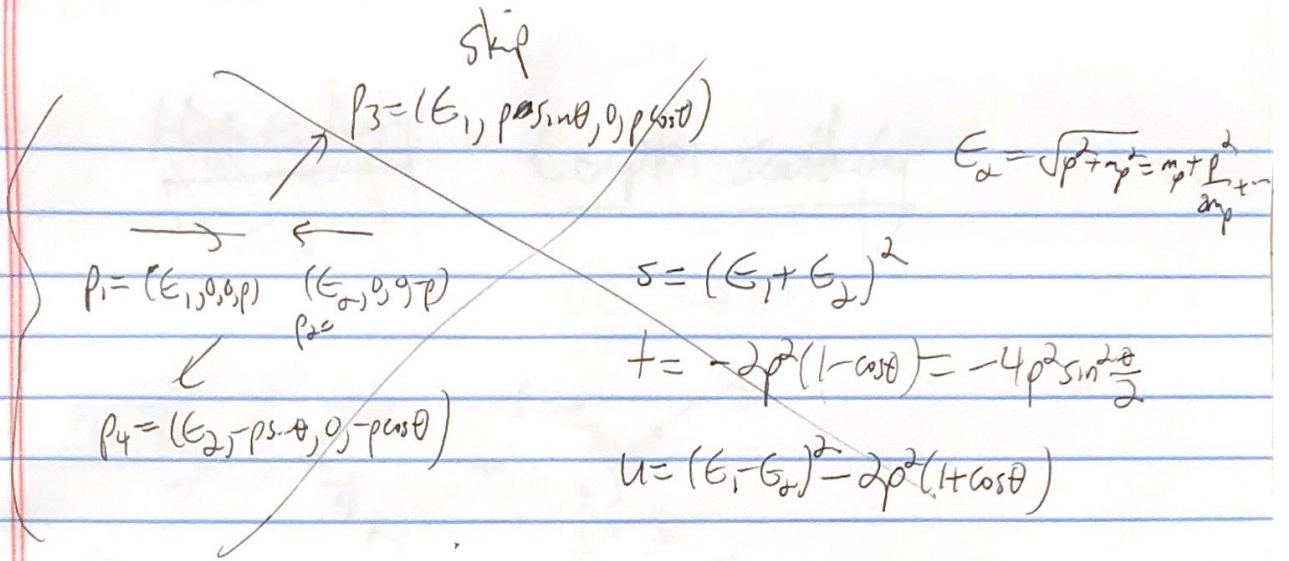 skip
p₃=(ϵ₁, psinθ,0,pcosθ)
ϵ₂ = √(p²+mₚ²) = mₚ + p²/2mₚ + ...
p₁= (ϵ₁,0,0,p) (ϵ₂,0,0,-p)
p₂=
s = (ϵ₁+ϵ₂)²
t = -2p²(1-cosθ) = -4p²sin²θ/2
p₄ = (ϵ₂,-psinθ,0,-pcosθ)
u= (ϵ₁-ϵ₂)²-2p²(1+cosθ)